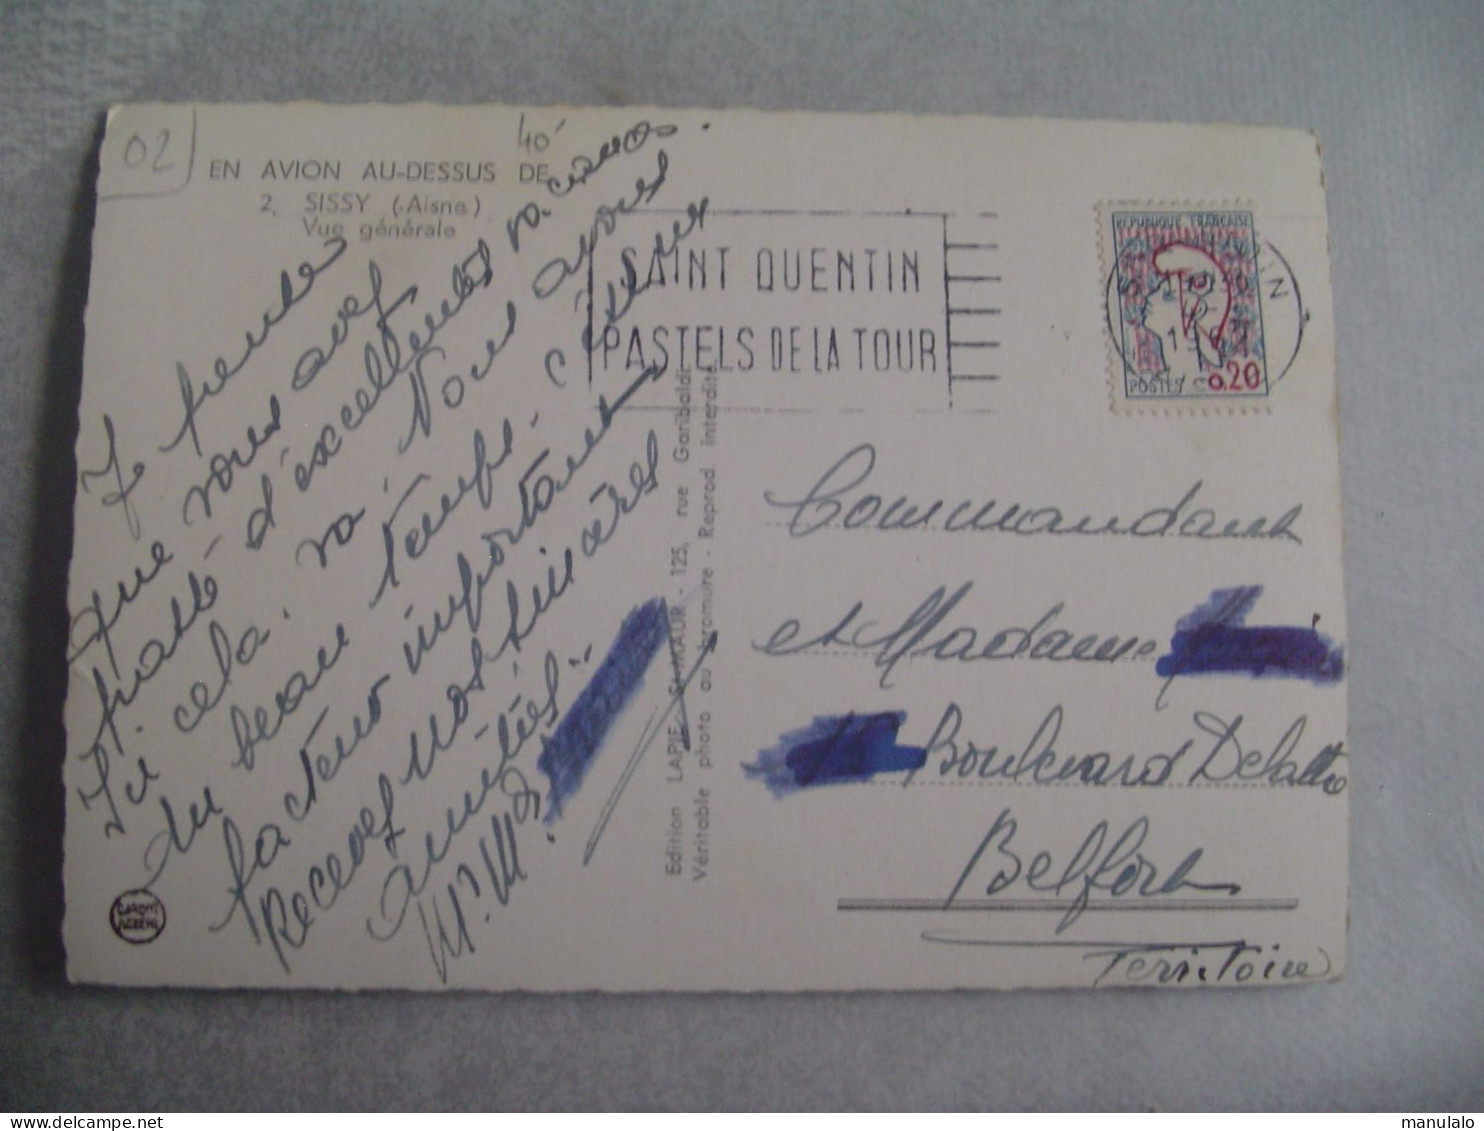 02
40
EN AVION AU-DESSUS DE
2. SISSY (Aisne)
Vue générale
Je pense
que vous avez
passé d'excellentes vacances.
Ici cela va. Nous avons
du beau temps. C'est un
facteur important
Recevez nos sincères
amitiés..
Mr. M
Edition LAPIE - 125, rue Garibaldi
Véritable photo au bromure - Reprod. interdite
SAINT QUENTIN
PASTELS DE LA TOUR
REPUBLIQUE FRANÇAISE
POSTES 0,20
Commandant
et Madame
Boulevard Delattre
Belfort
Territoire
manulalo